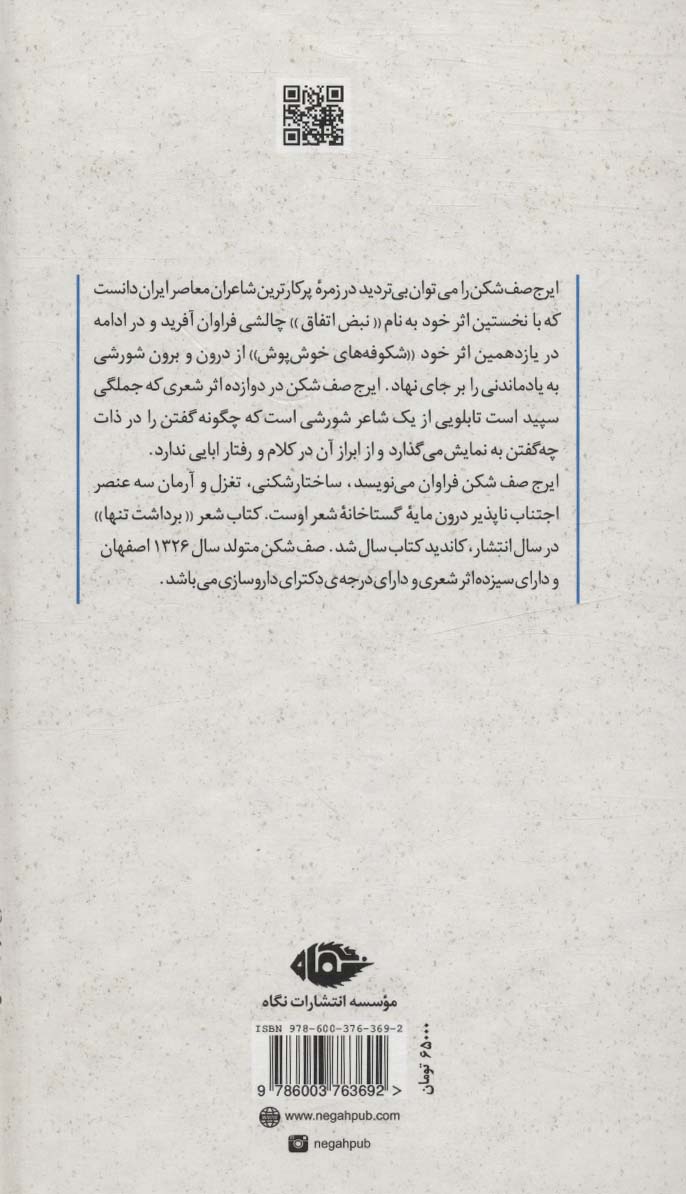 ایرج صف شکن را می توان بی تردید در زمرهٔ پرکارترین شاعران معاصر ایران دانست
که با نخستین اثر خود به نام «نبض اتفاق» چالشی فراوان آفرید و در ادامه
در یازدهمین اثر خود «شکوفه‌های خوش‌پوش» از درون و برون شورشی
به یادماندنی را بر جای نهاد. ایرج صف شکن در دوازده اثر شعری که جملگی
سپید است تابلویی از یک شاعر شورشی است که چگونه گفتن را در ذات
چه‌گفتن به نمایش می‌گذارد و از ابراز آن در کلام و رفتار ابایی ندارد.
ایرج صف شکن فراوان می‌نویسد، ساختارشکنی، تغزل و آرمان سه عنصر
اجتناب ناپذیر درون مایهٔ گستاخانهٔ شعر اوست. کتاب شعر «برداشت تنها»
در سال انتشار، کاندید کتاب سال شد. صف شکن متولد سال ۱۳۲۶ اصفهان
و دارای سیزده اثر شعری و دارای درجه‌ی دکترای داروسازی می‌باشد.
نگاه
مؤسسه انتشارات نگاه
ISBN 978-600-376-369-2
9 786003 763692 >
۶۵۰۰۰ تومان
www.negahpub.com
negahpub